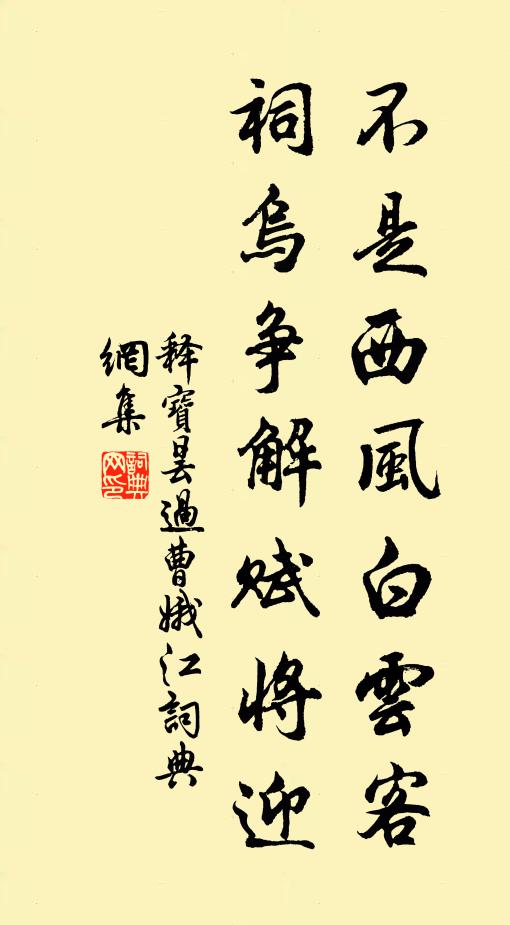 不是西風白雲客
祠烏争解賦將迎
释寶曇過曹娥江詞典
網集
詞典网印